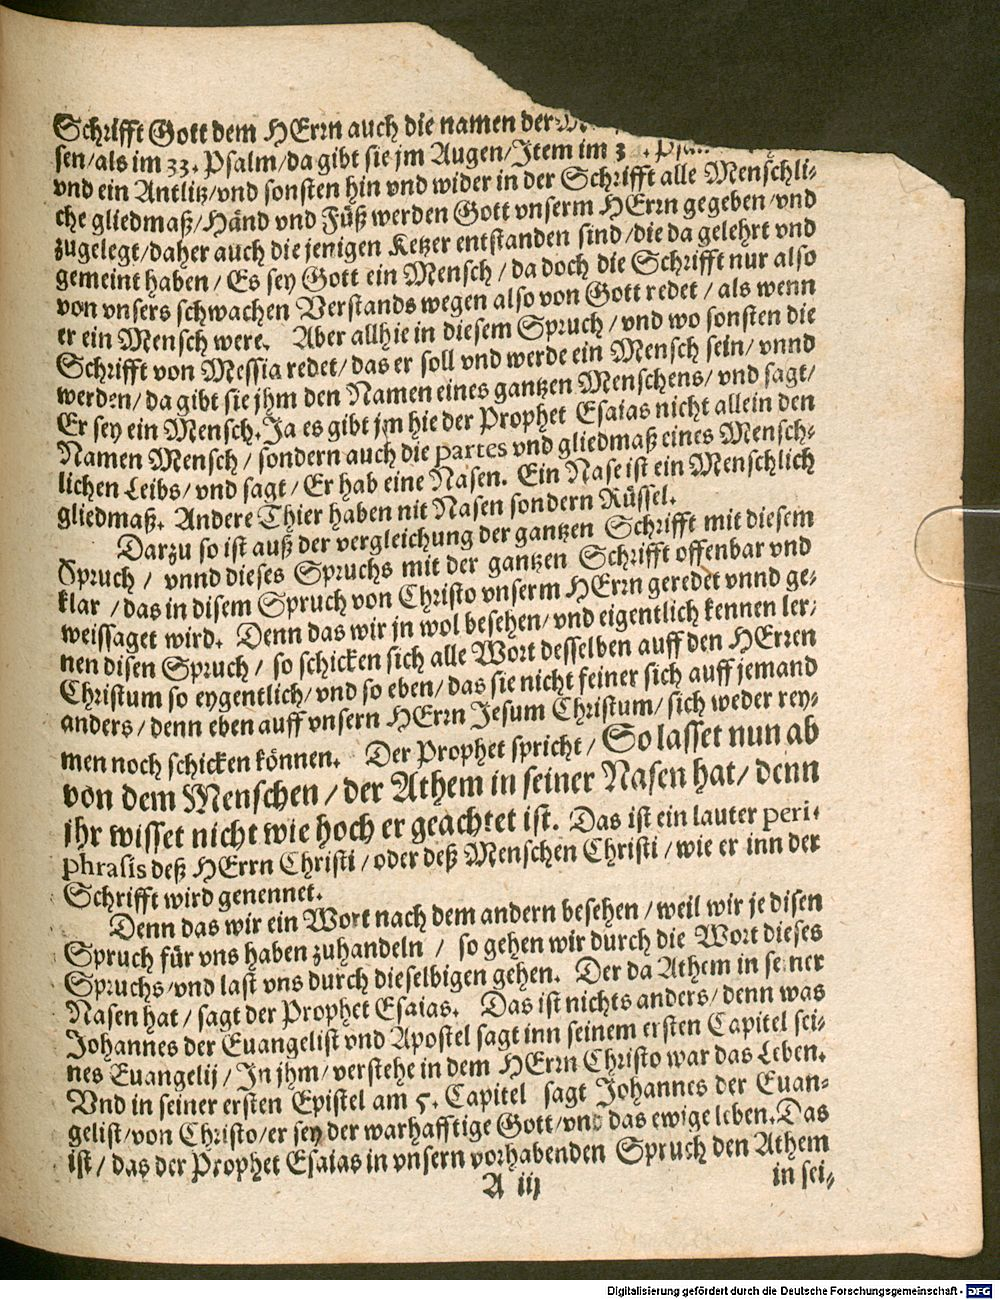 Schrifft Gott dem HErrn auch die namen der
sen/als im 33. Psalm/da gibt sie jm Augen/Item im
vnd ein Antlitz/vnd sonsten hin vnd wider in der Schrifft alle Menschli-
che gliedmaß/Händ vnd Füß werden Gott vnserm HErrn gegeben/vnd
zugelegt/daher auch die jenigen Ketzer entstanden sind/die da gelehrt vnd
gemeint haben/Es sey Gott ein Mensch/da doch die Schrifft nur also
von vnsers schwachen Verstands wegen also von Gott redet/als wenn
er ein Mensch were. Aber allhie in diesem Spruch/vnd wo sonsten die
Schrifft von Messia redet/das er soll vnd werde ein Mensch sein/vnnd
werden/da gibt sie jhm den Namen eines gantzen Menschens/vnd sagt/
Er sey ein Mensch. Ja es gibt jm hie der Prophet Esaias nicht allein den
Namen Mensch/sondern auch die partes vnd gliedmaß eines Mensch-
lichen Leibs/vnd sagt/Er hab eine Nasen. Ein Nase ist ein Menschlich
gliedmaß. Andere Thier haben nit Nasen sondern Rüssel.
Darzu so ist auß der vergleichung der gantzen Schrifft mit diesem
Spruch/vnnd dieses Spruchs mit der gantzen Schrifft offenbar vnd
klar/das in disem Spruch von Christo vnserm HErrn geredet vnnd ge-
weissaget wird. Denn das wir jn wol besehen/vnd eigentlich kennen ler-
nen disen Spruch/so schicken sich alle Wort desselben auff den HErren
Christum so eygentlich/vnd so eben/das sie nicht feiner sich auff jemand
anders/denn eben auff vnsern HErrn Jesum Christum/sich weder rey-
men noch schicken können. Der Prophet spricht/So lasset nun ab
von dem Menschen/der Athem in seiner Nasen hat/denn
jhr wisset nicht wie hoch er geachtet ist. Das ist ein lauter peri-
phrasis deß HErrn Christi/oder deß Menschen Christi/wie er inn der
Schrifft wird genennet.
Denn das wir ein Wort nach dem andern besehen/weil wir je disen
Spruch für vns haben zuhandeln/so gehen wir durch die Wort dieses
Spruchs/vnd last vns durch dieselbigen gehen. Der da Athem in seiner
Nasen hat/sagt der Prophet Esaias. Das ist nichts anders/denn was
Johannes der Euangelist vnd Apostel sagt inn seinem ersten Capitel sei-
nes Euangelij/In jhm/verstehe in dem HErrn Christo war das Leben.
Vnd in seiner ersten Epistel am 5. Capitel sagt Johannes der Euan-
gelist/von Christo/er sey der warhafftige Gott/vnd das ewige leben. Das
ist/das der Prophet Esaias in vnsern vorhabenden Spruch den Athem
A iij
in sei-
Digitalisierung gefördert durch die Deutsche Forschungsgemeinschaft - DFG